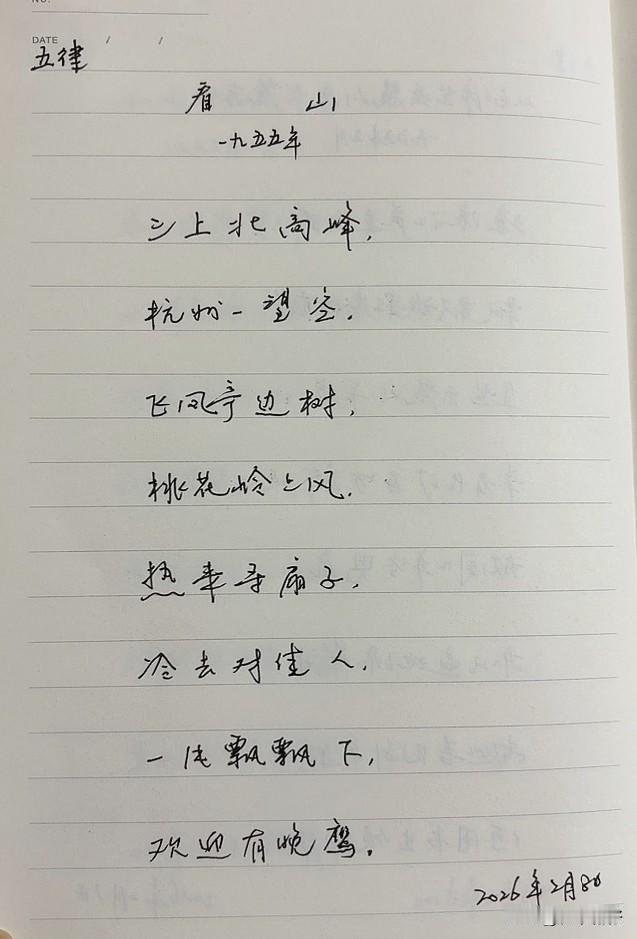 NO.
DATE / /
五律
看 山
一九五五年
三上北高峰，
杭州一望空。
飞凤亭边树，
桃花岭上风。
热来寻扇子，
冷去对佳人。
一片飘飘下，
欢迎有晚鹰。
2026年2月8日